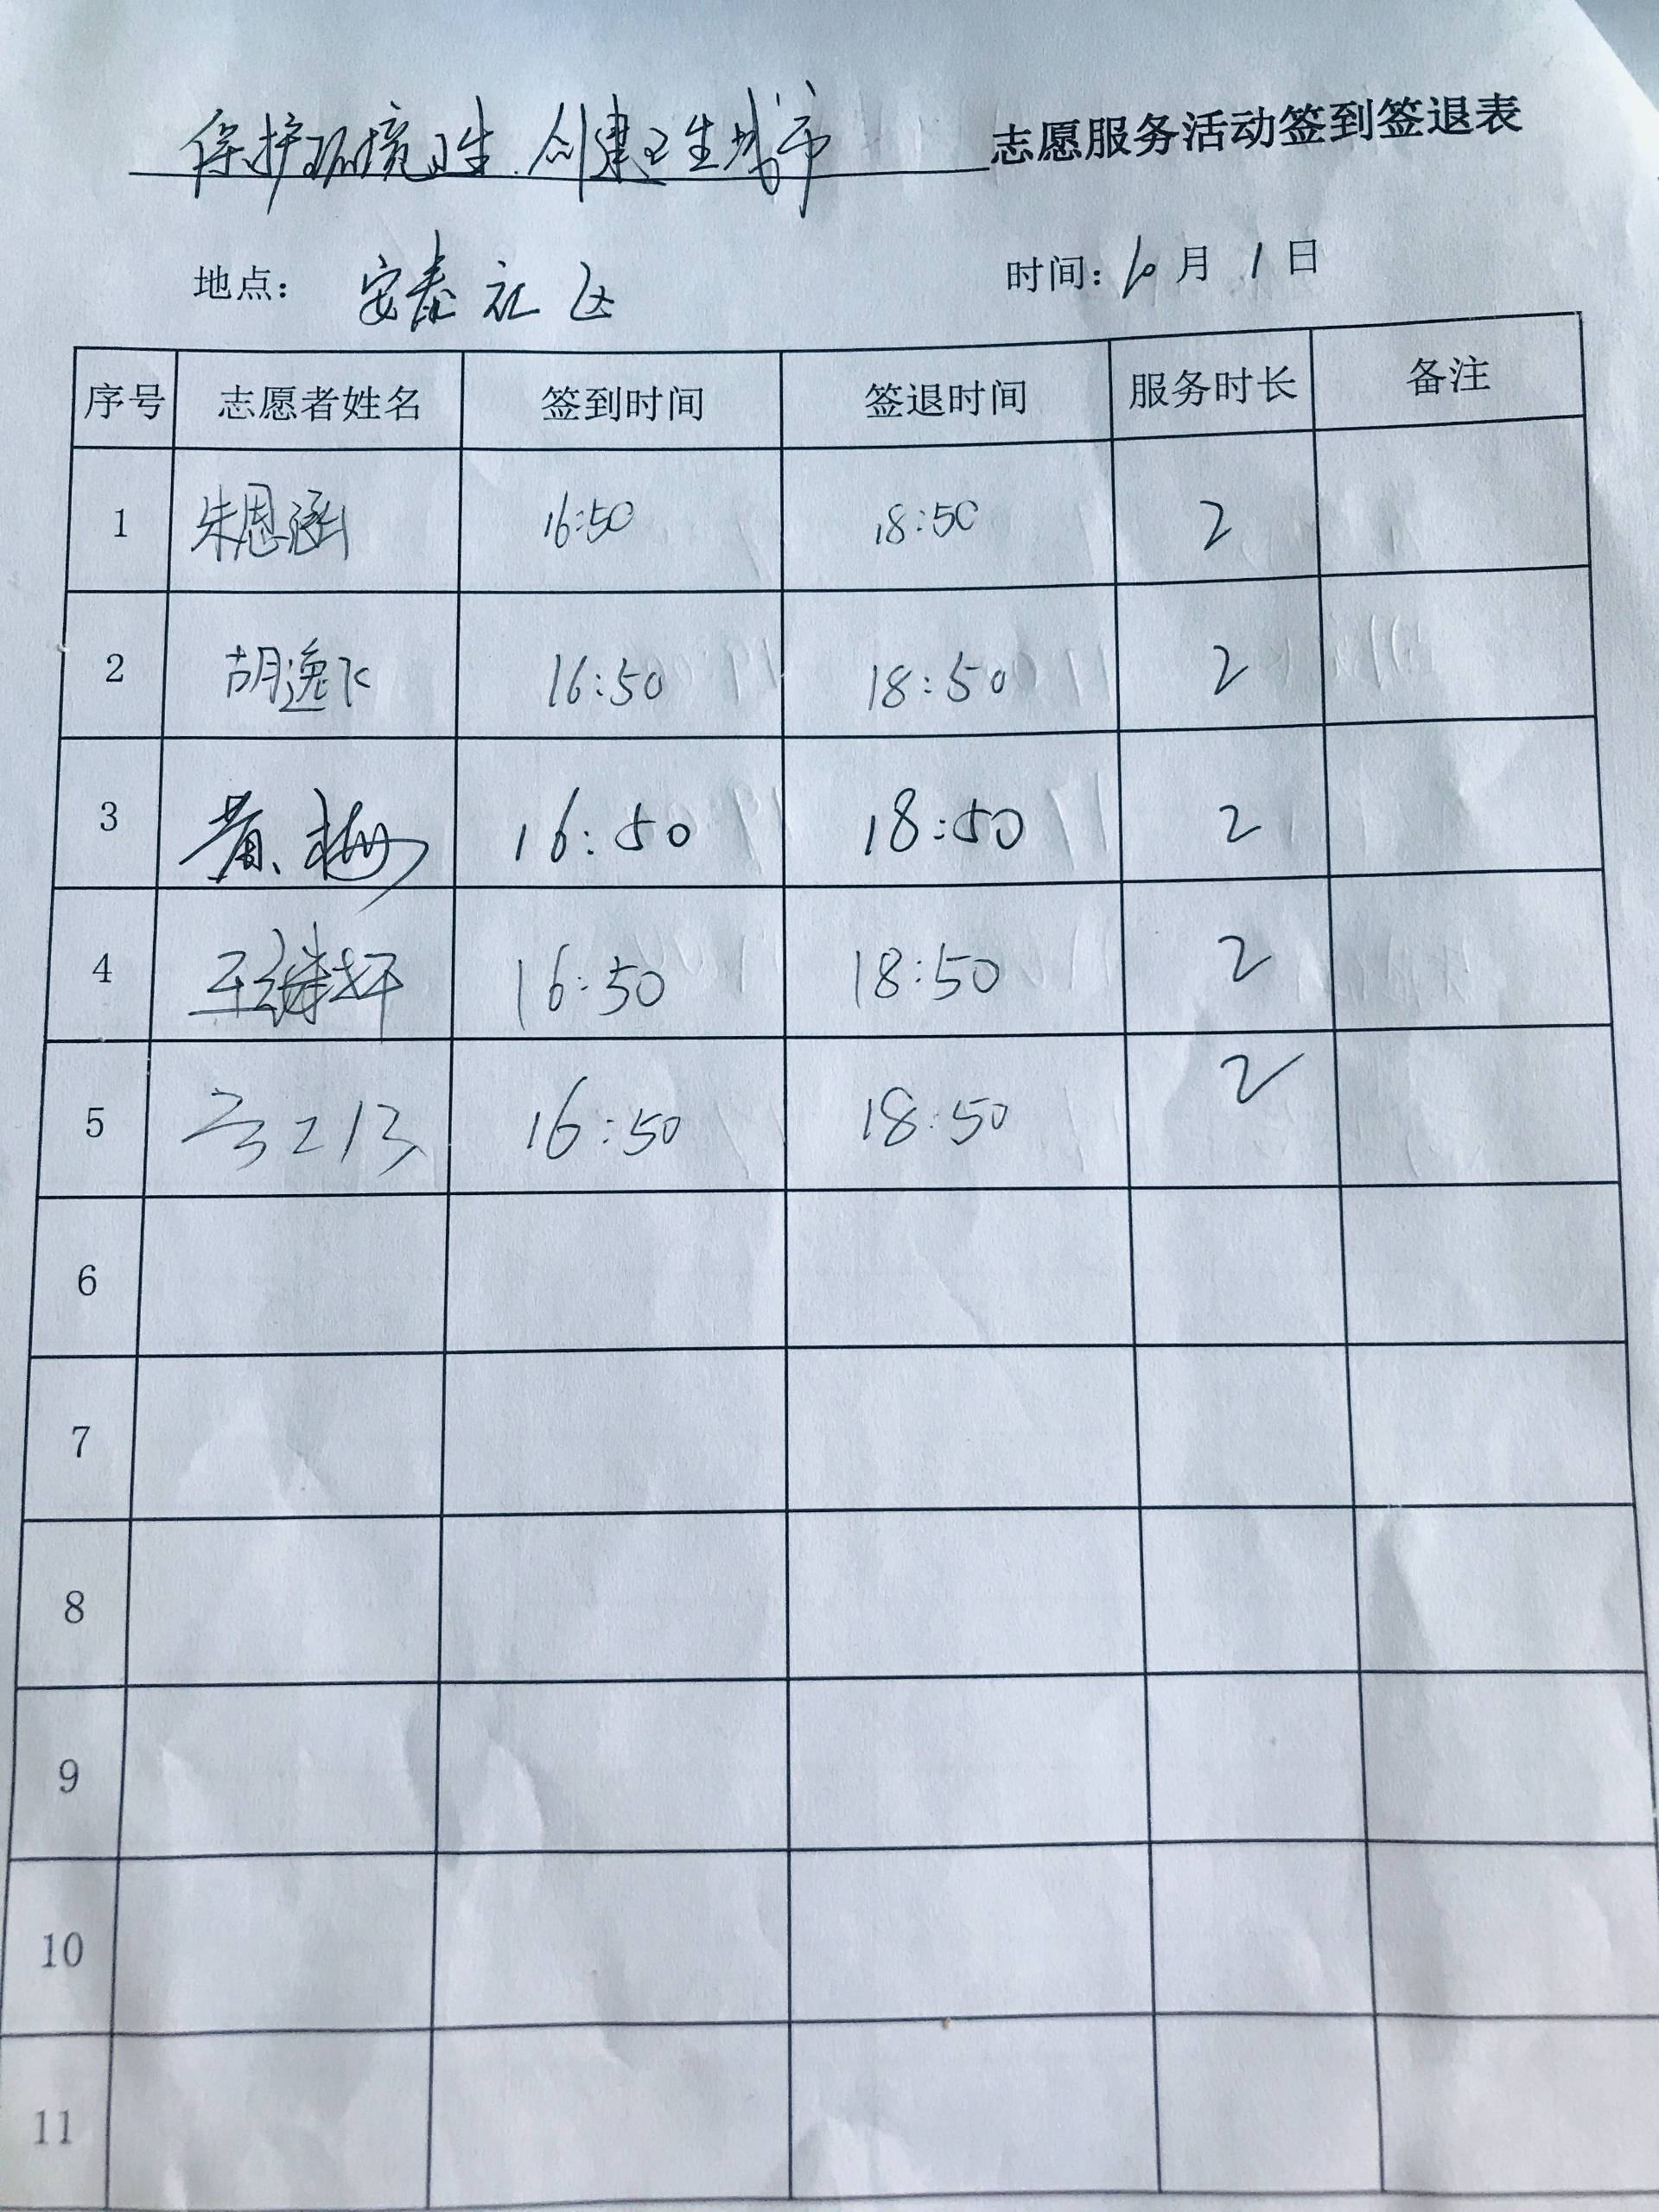 保护环境卫生.创建卫生城市 志愿服务活动签到签退表
地点： 安泰社区 时间：10月1日
序号 志愿者姓名 签到时间 签退时间 服务时长 备注
1 朱恩涵 16:50 18:50 2
2 胡逸飞 16:50 18:50 2
3 黄梅 16:50 18:50 2
4 16:50 18:50 2
5 16:50 18:50 2
6
7
8
9
10
11